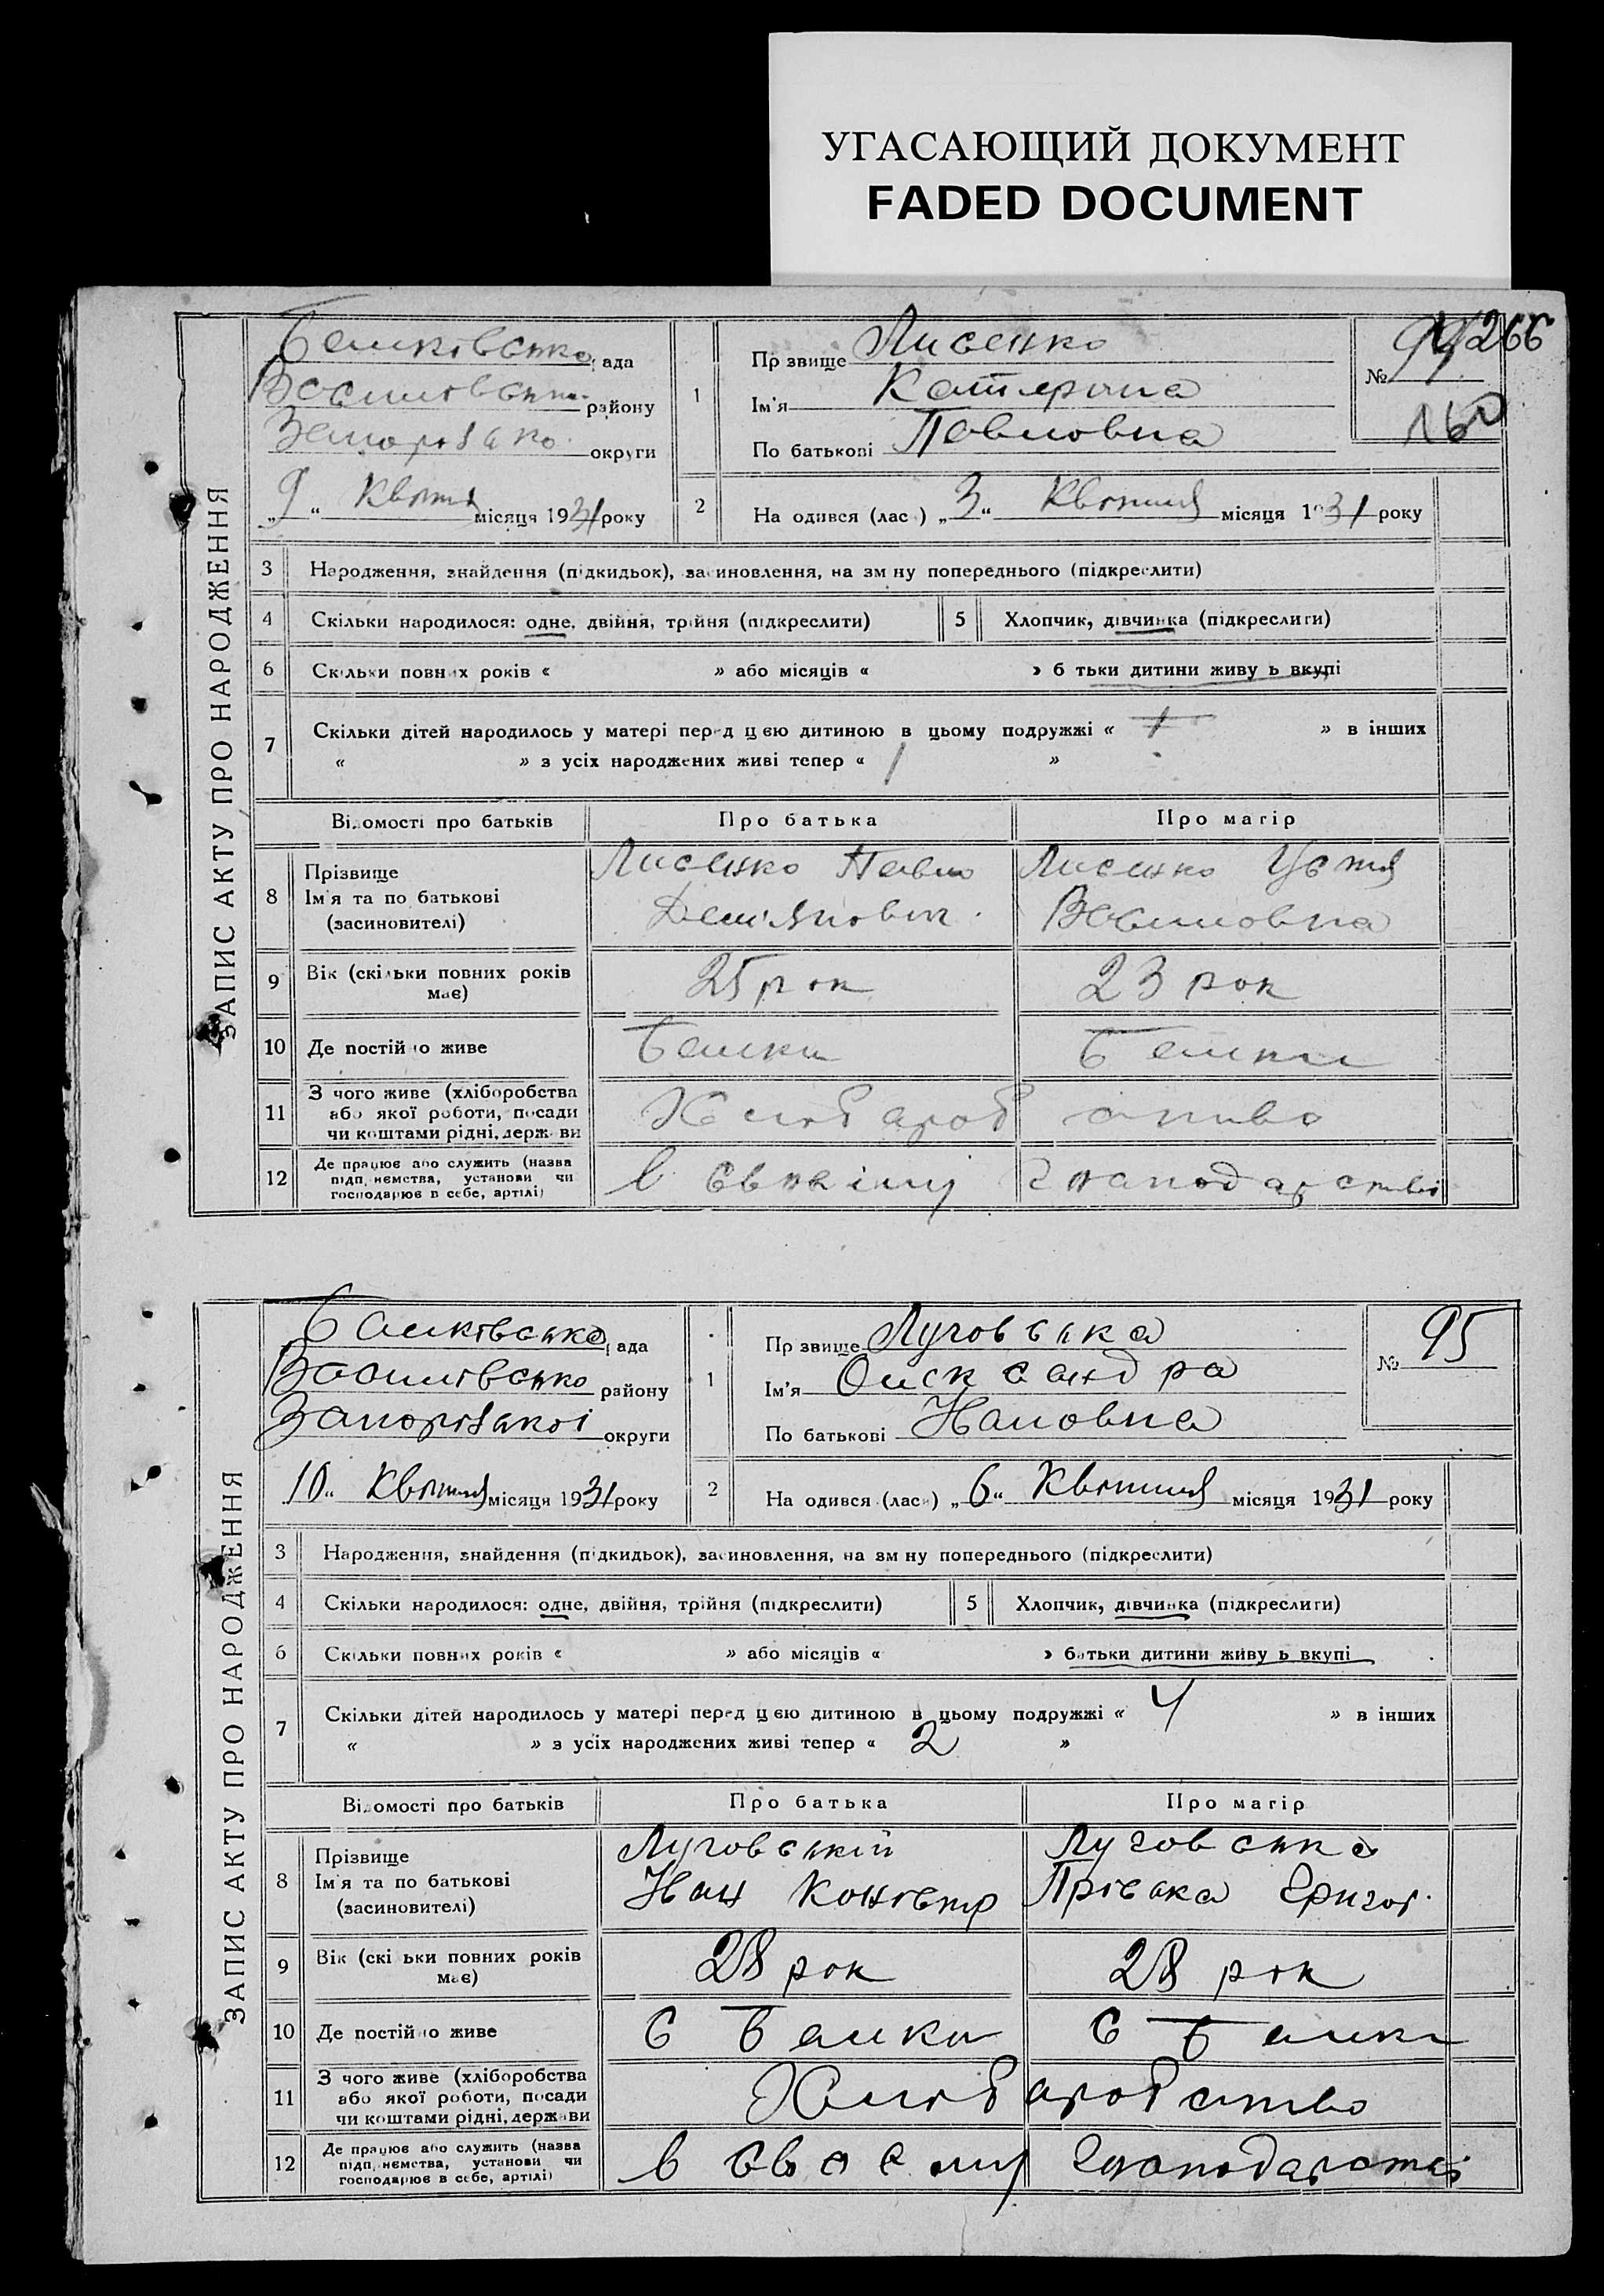 УГАСАЮЩИЙ ДОКУМЕНТ
FADED DOCUMENT
ЗАПИС АКТУ ПРО НАРОДЖЕННЯ
рада
району
округи
„9“ Квітня місяця 1931 року
1
Прізвище Лисенко
Ім'я Катерина
По батькові Павловна
№ 94
266
160
2
На одився (лас ) „3“ Квітня місяця 1931 року
3 Народження, знайдення (підкидьок), засиновлення, на зм ну попереднього (підкреслити)
4 Скільки народилося: одне, двійня, трійня (підкреслити) 5 Хлопчик, дівчинка (підкреслити)
6 Скільки повних років « » або місяців « » б тьки дитини живу ь вкупі
7 Скільки дітей народилось у матері перед цією дитиною в цьому подружжі « 1 » в інших
« » з усіх народжених живі тепер « 1 »
Відомості про батьків Про батька Про матір
8 Прізвище Ім'я та по батькові (засновителі)
Лисенко Павло Лисенко Устя
9 Вік (скільки повних років має) 25 рок 23 рок
10 Де постійно живе Балки Балки
11 З чого живе (хліборобства
або якої роботи, посади
чи коштами рідні, держави
12 Де працює або служить (назва
підприємства, установи чи
господарює в себе, артілі)
ЗАПИС АКТУ ПРО НАРОДЖЕННЯ
Балківська рада
району
Запорізької округи
10“ Квітня місяця 1931 року
1
Прізвище Луговська
Ім'я Олександра
По батькові Ивановна
№ 95
2
На одився (лас ) „6“ Квітня місяця 1931 року
3 Народження, знайдення (підкидьок), засиновлення, на зм ну попереднього (підкреслити)
4 Скільки народилося: одне, двійня, трійня (підкреслити) 5 Хлопчик, дівчинка (підкреслити)
6 Скільки повних років « » або місяців « » батьки дитини живу ь вкупі
7 Скільки дітей народилось у матері перед цією дитиною в цьому подружжі « 4 » в інших
« » з усіх народжених живі тепер « 2 »
Відомості про батьків Про батька Про матір
8 Прізвище Ім'я та по батькові (засиновителі)
Луговський Луговська
9 Вік (скі ьки повних років має) 28 рок 28 рок
10 Де постійно живе с Балки с Балки
11 З чого живе (хліборобства
або якої роботи, посади
чи коштами рідні, держави
12 Де працює або служить (назва
підприємства, установи чи
господарює в себе, артілі)